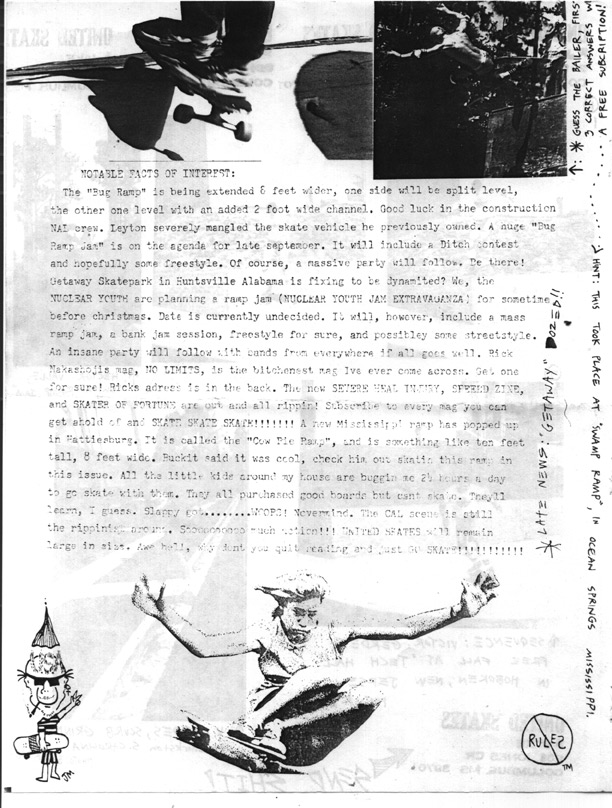 NOTABLE FACTS OF INTEREST:
The "Bug Ramp" is being extended 8 feet wider, one side will be split level,
the other one level with an added 2 foot wide channel. Good luck in the construction
NAL crew. Leyton severely mangled the skate vehicle he previously owned. A huge "Bug
Ramp Jam" is on the agenda for late september. It will include a Ditch contest
and hopefully some freestyle. Of course, a massive party will follow. Be there!
Getaway Skatepark in Huntsville Alabama is fixing to be dynamited? We, the
NUCLEAR YOUTH are planning a ramp jam (NUCLEAR YOUTH JAM EXTRAVAGANZA) for sometime
before christmas. Date is currently undecided. It will, however, include a mass
ramp jam, a bank jam session, freestyle for sure, and possibley some streetstyle.
An insane party will follow with bands from everywhere if all goes well. Rick
Nakashojis mag, NO LIMITS, is the bitchenest mag Ive ever come across. Get one
for sure! Ricks adress is in the back. The new SEVERE HEAL INJURY, SPEERD ZINE,
and SKATER OF FORTUNE are out and all rippin! Subscribe to every mag you can
get ahold of and SKATE SKATE SKATE!!!!!!! A new Mississippi ramp has popped up
in Hattiesburg. It is called the "Cow Pie Ramp", and is something like ten feet
tall, 8 feet wide. Buckit said it was cool, check him out skatin this ramp in
this issue. All the little kids around my house are buggin me 24 hours a day
to go skate with them. They all purchased good boards but cant skate. Theyll
learn, I guess. Slappy got........WOOPS! Nevermind. The CAL scene is still
the rippinist around. Sooooooooo much action!!! UNITED SKATES will remain
large in size. Awe hell, why dont you quit reading and just GO SKATE!!!!!!!!!!!
* LATE NEWS: "GETAWAY" DOZED!!
↑: * GUESS THE BAILER, FIRST
3 CORRECT ANSWERS W
A FREE SUBSCRIPTION!
HINT: THIS TOOK PLACE AT "SWAMP RAMP", IN OCEAN SPRINGS MISSISSIPPI.
RULES
TM
JM
SEND SHIT!
UNITED SKATES
SEQUENCE:
FREE FALL AT "TECH HALL"
IN HOBOKEN, NEW